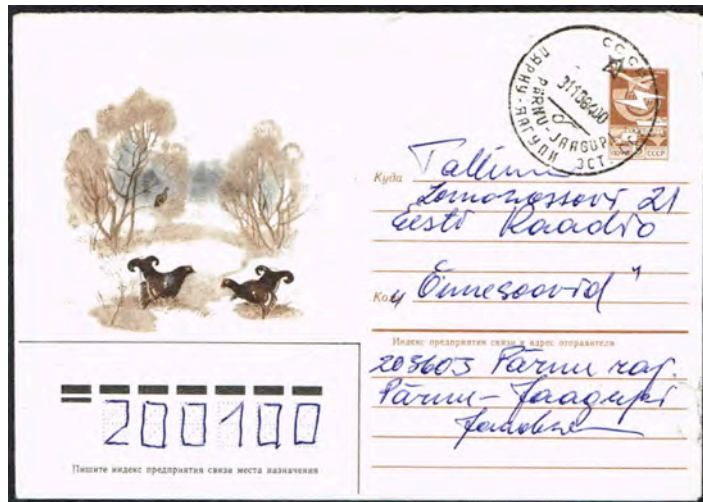 СССР
ПЯРНУ-ЯАГУПИ ЭСТ.
PÄRNU-JAAGUPI
ПОЧТА СССР
Куда Tallinn
Lomonossovi 21
Eesti Raadio
Кому „Õnnesoovid"
Индекс предприятия связи и адрес отправителя
203603 Pärnu raj.
Pärnu-Jaagupi
200100
Пишите индекс предприятия связи места назначения